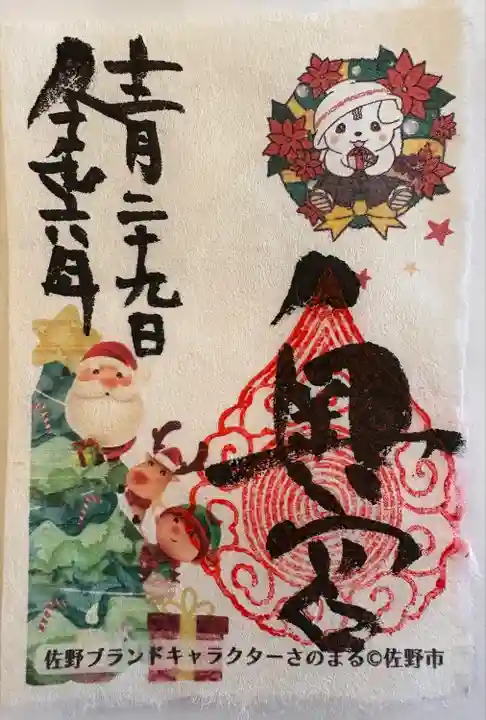 奥宮
二十九日
六年
佐野ブランドキャラクターさのまる©佐野市